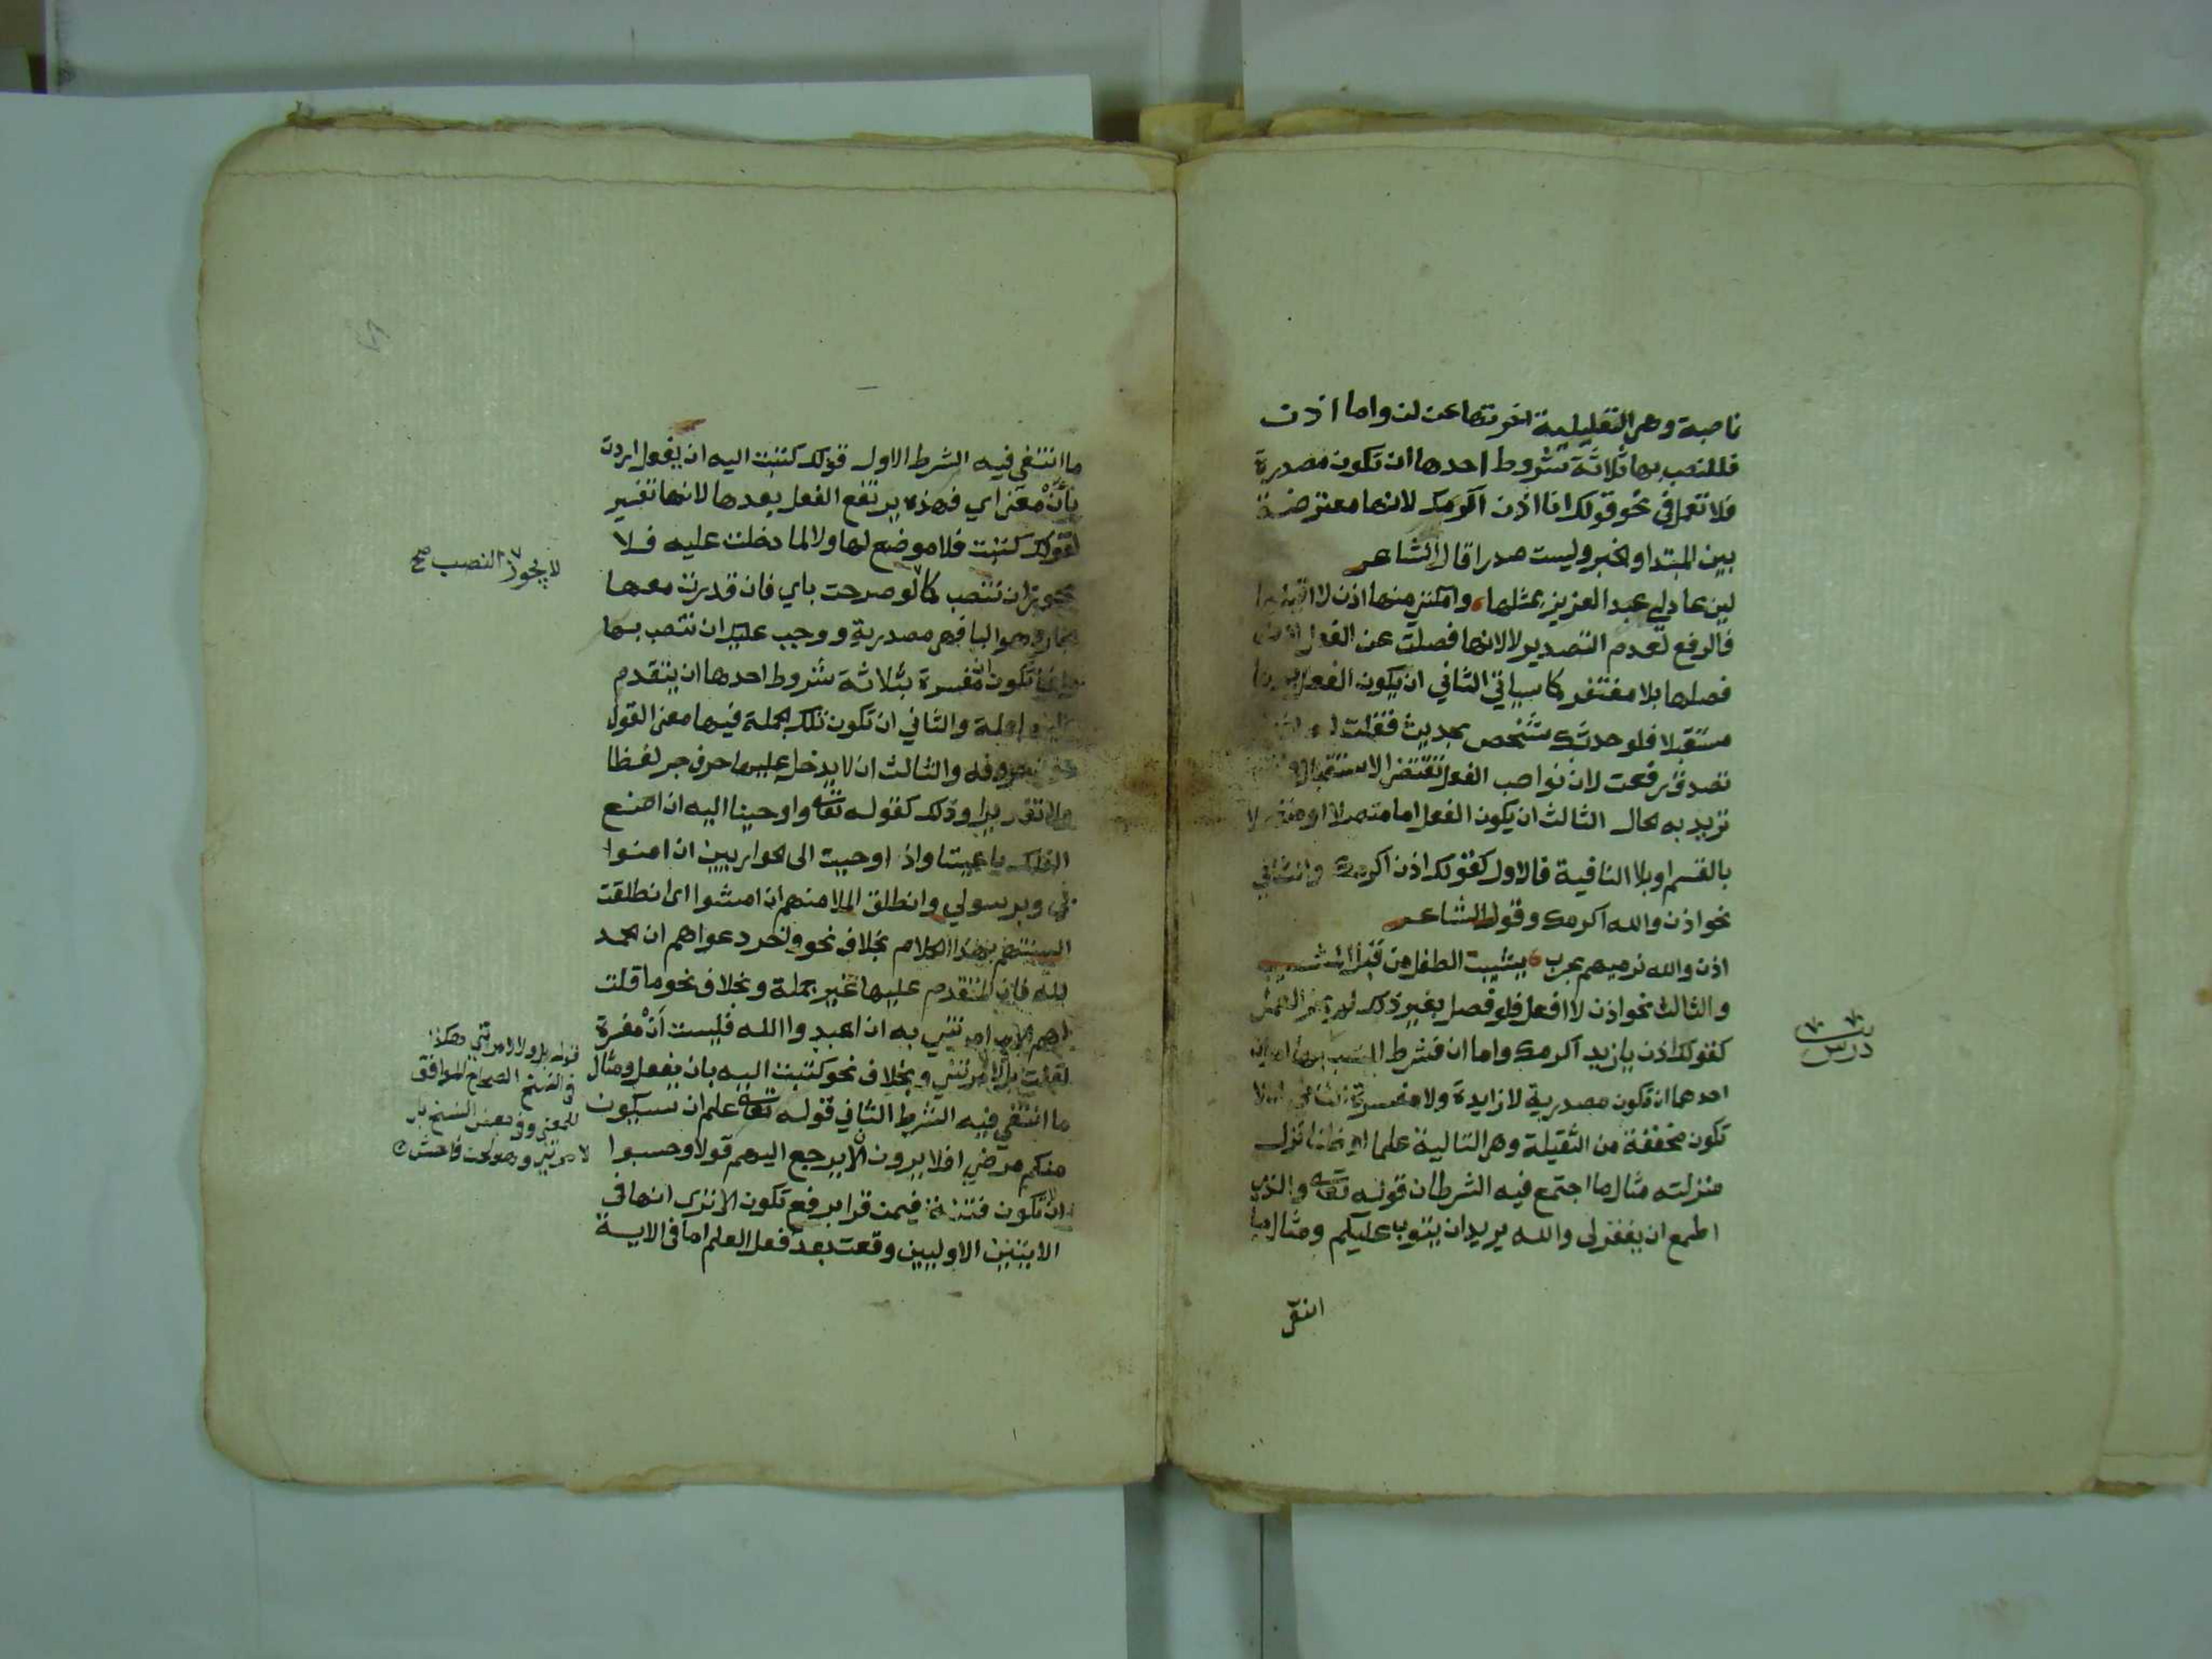 ناصبة وهي التعليلية اخرتها عن لن واما اذن
فللنصب بها ثلاثة شروط احدها ان تكون مصدرة
فلا تعمل في نحو قولك انا اذن اكرمك لانها معترضة
بين المبتدا والخبر وليست صدرا قال الشاعر
لين عاد لي عبد العزيز بمثلها وامكنني منها اذن لا اقيلها
فالرفع لعدم التصدير لا لانها فصلت عن الفعل لان
فصلها بلا مغتفر كما سياتي الثاني ان يكون الفعل بعدها
مستقبلا فلو حدثك شخص بحديث فقلت له اذن
تصدق رفعت لان نواصب الفعل تقتضي الاستقبال وانت
تريد به الحال الثالث ان يكون الفعل اما متصلا او منفصلا
بالقسم او بلا النافية فالاول كقولك اذن اكرمك والثاني
نحو اذن والله اكرمك وقول الشاعر
اذن والله نرميهم بحرب يشيب الطفل من قبل المشيب
والثالث نحو اذن لا افعل فلو فصل بغير ذلك لم يجز العمل
كقولك اذن يا زيد اكرمك واما ان فشرط النصب بها امران
احدهما ان تكون مصدرية لا زايدة ولا مفسرة الثاني ان لا
تكون مخففة من الثقيلة وهي التالية علما او ظنا نزل
منزلته مثال ما اجتمع فيه الشرطان قوله تعالى والذي
اطمع ان يغفر لي والله يريد ان يتوب عليكم ومثال ما
انتفى
درس
ما انتفى فيه الشرط الاول قولك كتبت اليه ان يفعل اردت
بأنْ معنى اي فهذه يرتفع الفعل بعدها لانها تفسير
لقولك كتبت فلا موضع لها ولا لما دخلت عليه فلا
يجوز ان تنصب كما لو صرحت باي فان قدرت معها
الجار وهو البا فهي مصدرية ووجب عليك ان تنصب بها
وانما تكون ان مفسرة بثلاثة شروط احدها ان يتقدم
عليها جملة والثاني ان تكون تلك الجملة فيها معنى القول
دون حروفه والثالث ان لا يدخل عليها حرف جر لفظا
ولا تقديرا وذلك كقوله تعالى واوحينا اليه ان اصنع
الفلك باعيننا واذ اوحيت الى الحواريين ان امنوا
بي وبرسولي وانطلق الملا منهم ان امشوا اي انطلقت
السنتهم بهذا الكلام بخلاف نحو واخر دعواهم ان الحمد
لله فان المتقدم عليها غير جملة وبخلاف نحو ما قلت
لهم الا ما امرتني به ان اعبدوا الله فليست أنْ مفسرة
لقلت بل لامرتني وبخلاف نحو كتبت اليه بان يفعل ومثال
ما انتفى فيه الشرط الثاني قوله تعالى علم ان سيكون
منكم مرضي افلا يرون ان لا يرجع اليهم قولا وحسبوا
ان لا تكون فتنة فيمن قرا برفع تكون الا ترى انها في
الايتين الاوليين وقعت بعد فعل العلم اما في الاية
لا يجوز النصب صح
قوله بل ولا لامرتني هكذا
في النسخ الصحاح الموافق
للمعنى وفي بعض النسخ بل
لا امرتني وهو لحن فاحش